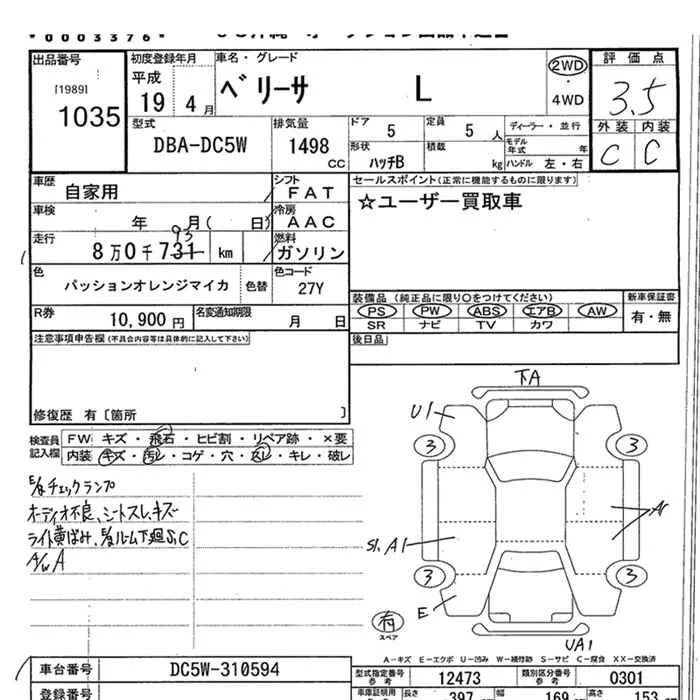 *0003376*
出品番号
[1989]
1035
初度登録年月
平成
19 4月
車名・グレード
ベリーサ L
2WD
・
4WD
評価点
3.5
外装 内装
C C
型式
DBA-DC5W
排気量
1498
CC
ドア 5
定員 5 人
形状 ハッチB
積載 kg
ディーラー・並行
モデル年式 年
ハンドル 左・右
車歴
自家用
シフト
FAT
車検
年 月( 日)
冷房
AAC
走行
8万0千731 km
93
燃料
ガソリン
色
パッションオレンジマイカ
色替
色コード
27Y
R券
10,900円
名変通知期限
月 日
セールスポイント(正常に機能するものに限ります)
☆ユーザー買取車
装備品 (純正品に限り○をつけてください)
PS PW ABS エアB AW
SR ナビ TV カワ
新車保証書
有・無
後日品
注意事項申告欄(不具合内容等は具体的に記入して下さい)
修復歴 有〔箇所 〕
検査員記入欄
FW キズ・飛石・ヒビ割・リペア跡・×要
内装 キズ・汚レ・コゲ・穴・スレ・キレ・破レ
E/gチェックランプ
オーディオ不良、シートスレ、キズ
ライト黄ばみ、E/gルーム下廻S,C
A/W A
下A
U1
3
3
S1,A1
A
3
3
E
有
スペア
UA1
A-キズ E-エクボ U-凹み W-補修跡 S-サビ C-腐食 XX-交換済
車台番号
DC5W-310594
登録番号
型式指定番号
参考
12473
類別区分番号
参考
0301
車庫証明用
長さ 397
幅 169
高さ 153